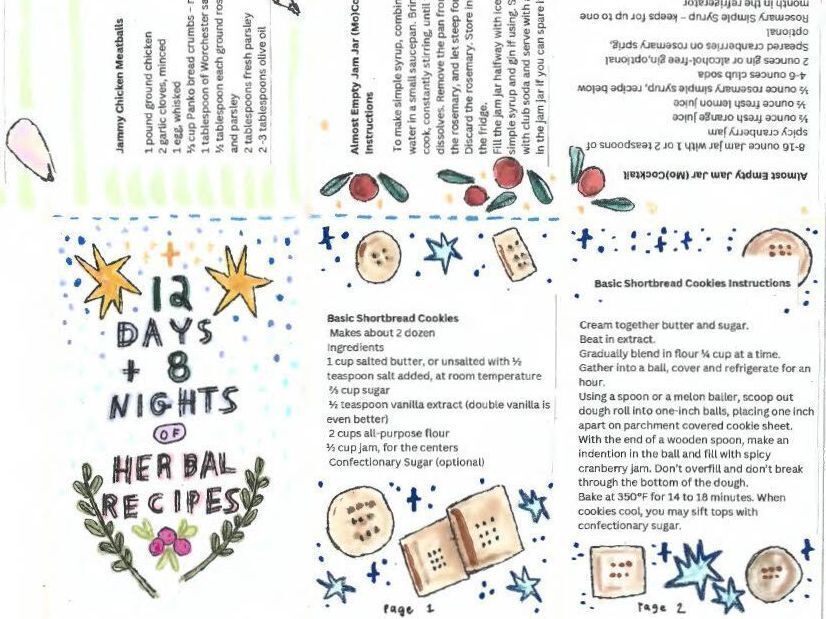 Jammy Chicken Meatballs
1 pound ground chicken
2 garlic cloves, minced
1 egg, whisked
⅓ cup Panko bread crumbs –
1 tablespoon of Worchester
½ tablespoon each ground
and parsley
2 tablespoons fresh parsley
2 -3 tablespoons olive oil
Almost Empty Jam Jar
Instructions
To make simple syrup,
water in a small saucepan.
cook, constantly stirring, until
dissolves. Remove the pan
the rosemary, and let steep for
Discard the rosemary. Store in
the fridge.
Fill the jam jar halfway with
simple syrup and gin if using.
with club soda and serve with
in the jam jar if you can spare
Almost Empty Jam Jar (Mo)Cocktail
8-16 ounce Jam jar with 1 or 2 teaspoons of
spicy cranberry jam
½ ounce fresh orange juice
½ ounce fresh lemon juice
½ ounce rosemary simple syrup, recipe below
4-6 ounces club soda
2 ounces gin or alcohol-free gin,optional
Speared cranberries on rosemary sprig,
optional
Rosemary Simple Syrup – keeps for up to one
month in the refrigerator
12
DAYS
+ 8
NIGHTS
OF
HERBAL
RECIPES
Basic Shortbread Cookies
Makes about 2 dozen
Ingredients
1 cup salted butter, or unsalted with ½
teaspoon salt added, at room temperature
⅔ cup sugar
½ teaspoon vanilla extract (double vanilla is
even better)
2 cups all-purpose flour
⅓ cup jam, for the centers
Confectionary Sugar (optional)
Page 1
Basic Shortbread Cookies Instructions
Cream together butter and sugar.
Beat in extract.
Gradually blend in flour ¼ cup at a time.
Gather into a ball, cover and refrigerate for an
hour.
Using a spoon or a melon baller, scoop out
dough roll into one-inch balls, placing one inch
apart on parchment covered cookie sheet.
With the end of a wooden spoon, make an
indention in the ball and fill with spicy
cranberry jam. Don't overfill and don't break
through the bottom of the dough.
Bake at 350°F for 14 to 18 minutes. When
cookies cool, you may sift tops with
confectionary sugar.
Page 2